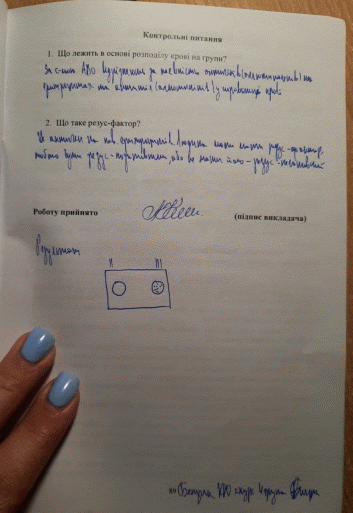 Контрольні питання
1. Що лежить в основі розподілу крові на групи?
За с-мою АВО відрізняють за наявністю антигенів (аглютиногенів) на
еритроцитах та антитіл (аглютинінів) у сироватці крові
2. Що таке резус-фактор?
Це антиген на пов. еритроцитів. Людина може мати резус-фактор,
тобто бути резус-позитивною, або не мати його - резус-негативний
Роботу прийнято
(підпис викладача)
Результат
II III